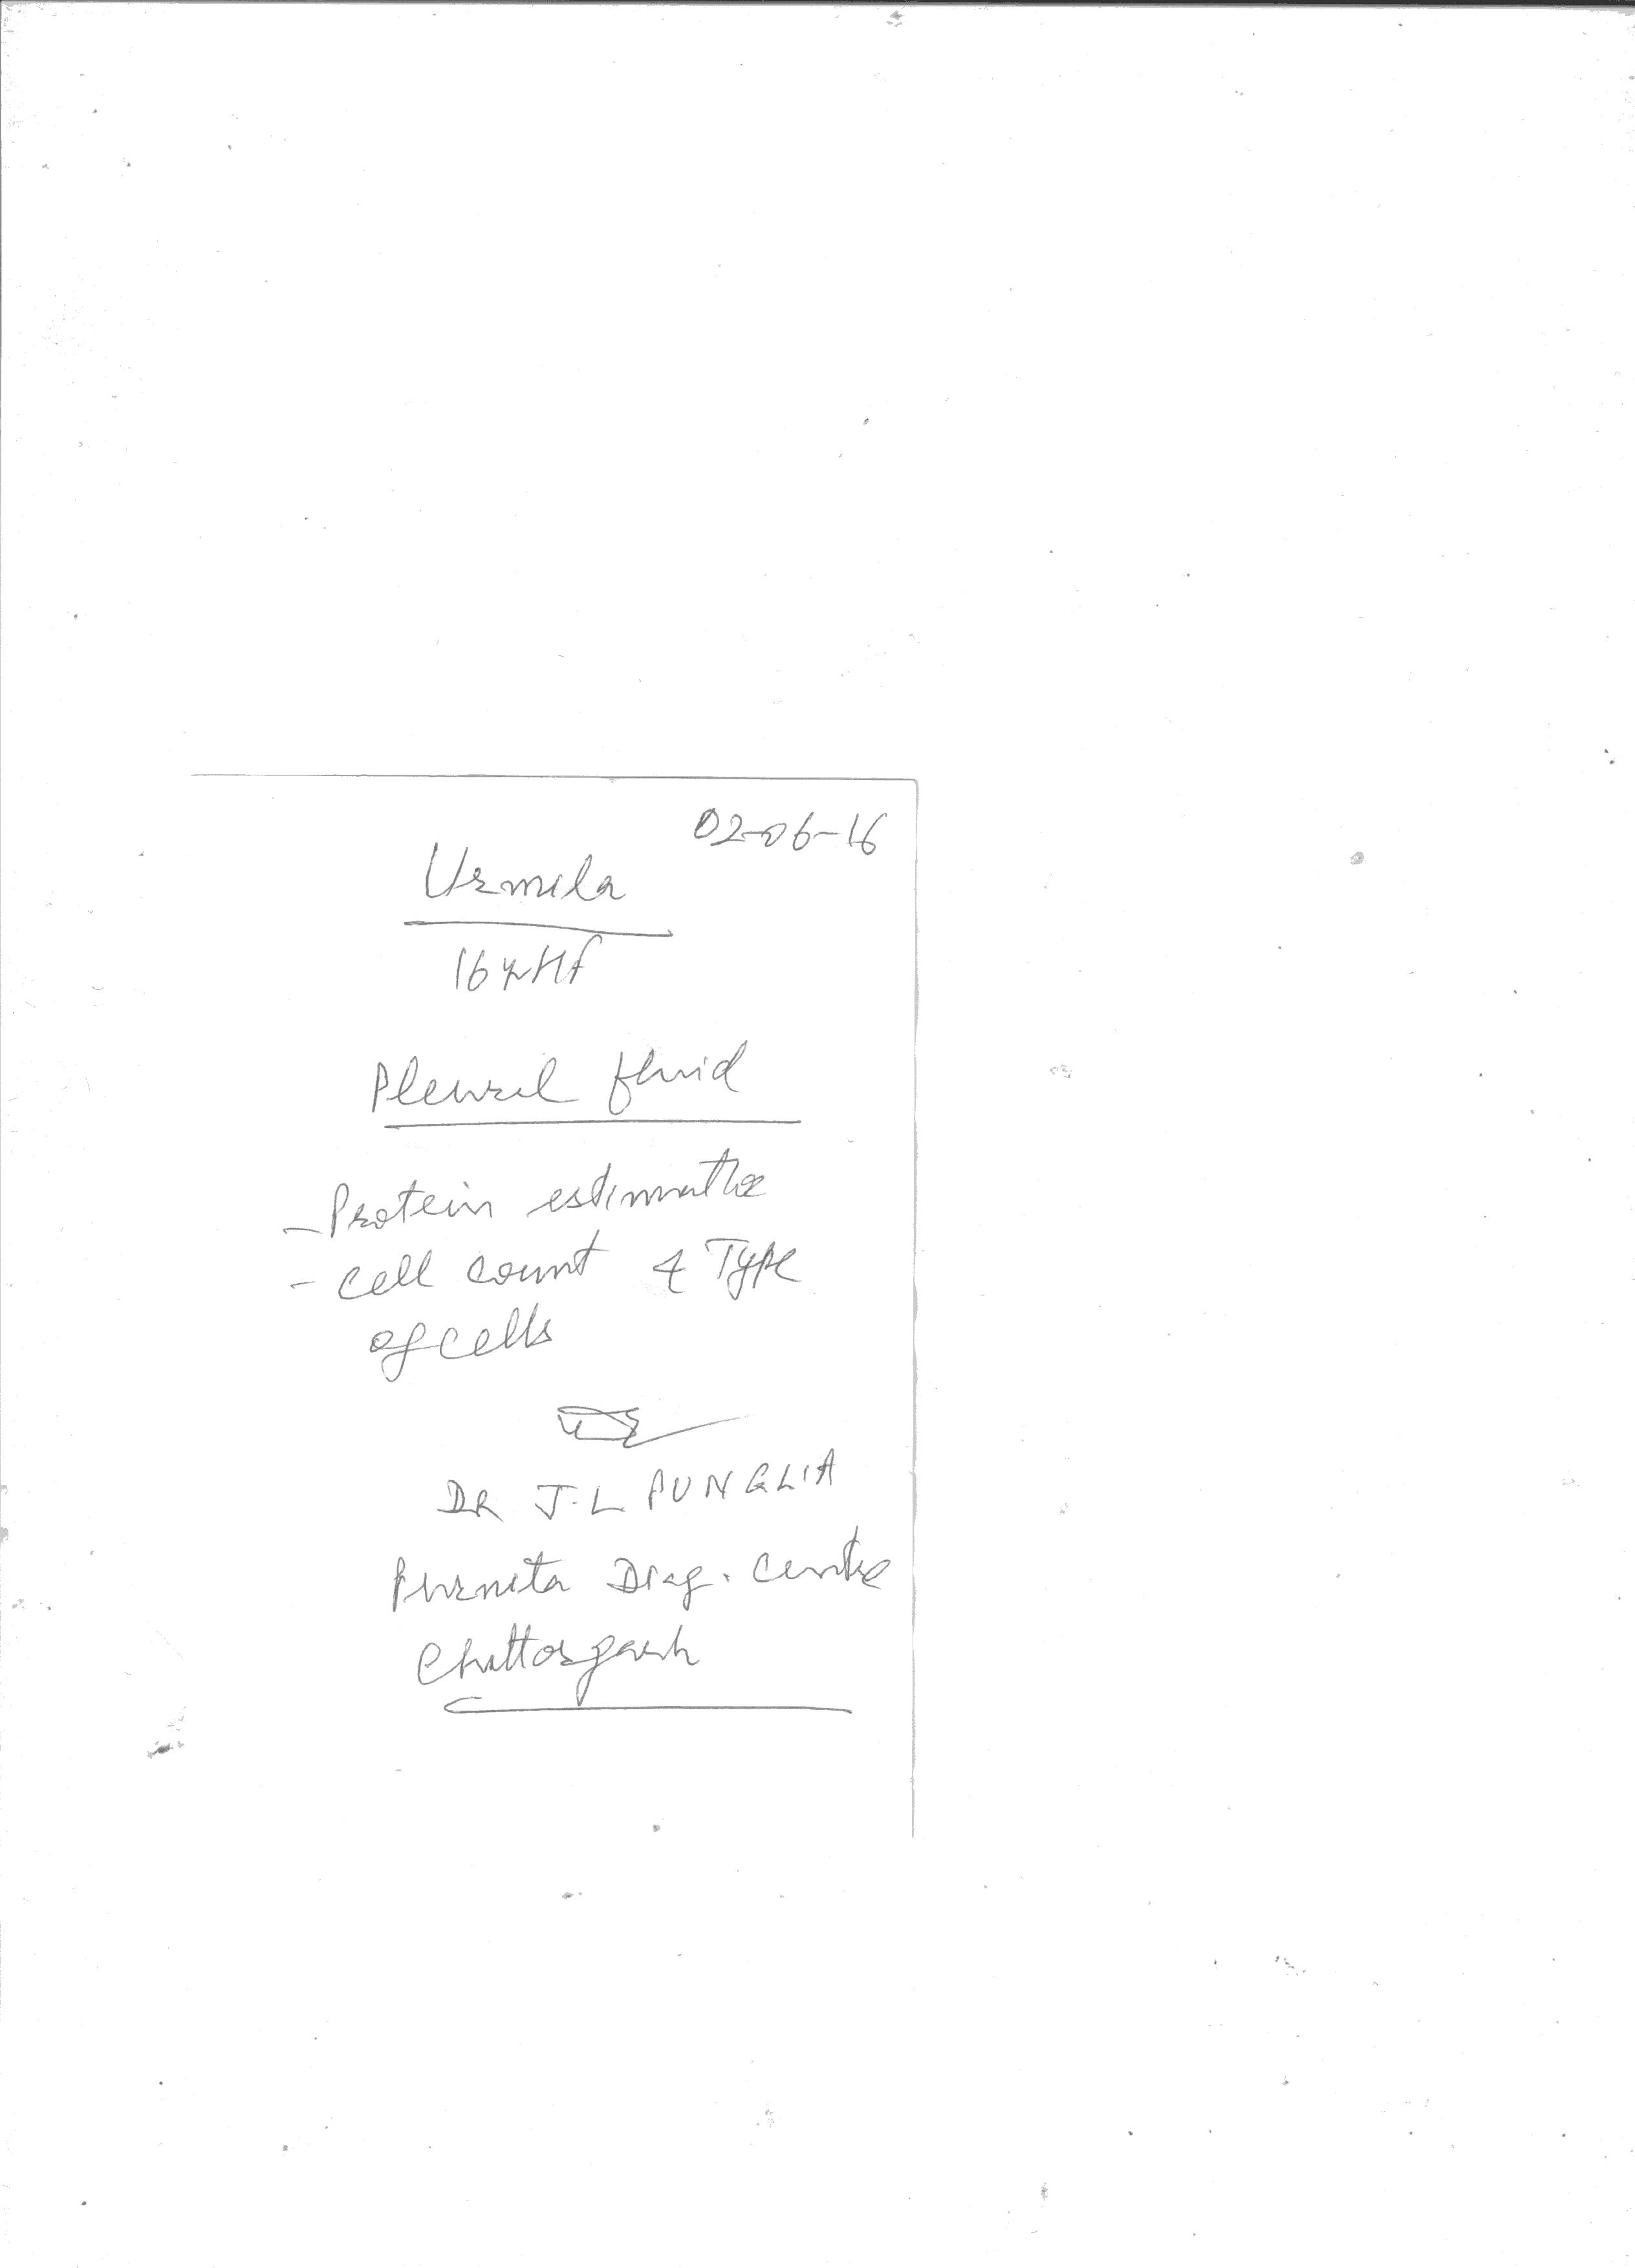 02-06-16
Urmila
16 yr/f
Pleural fluid
- Protein estimation
- Cell count & Type
of cells
DR J.L PUNGLIA
Purnita Diag. Centre
Chittorgarh